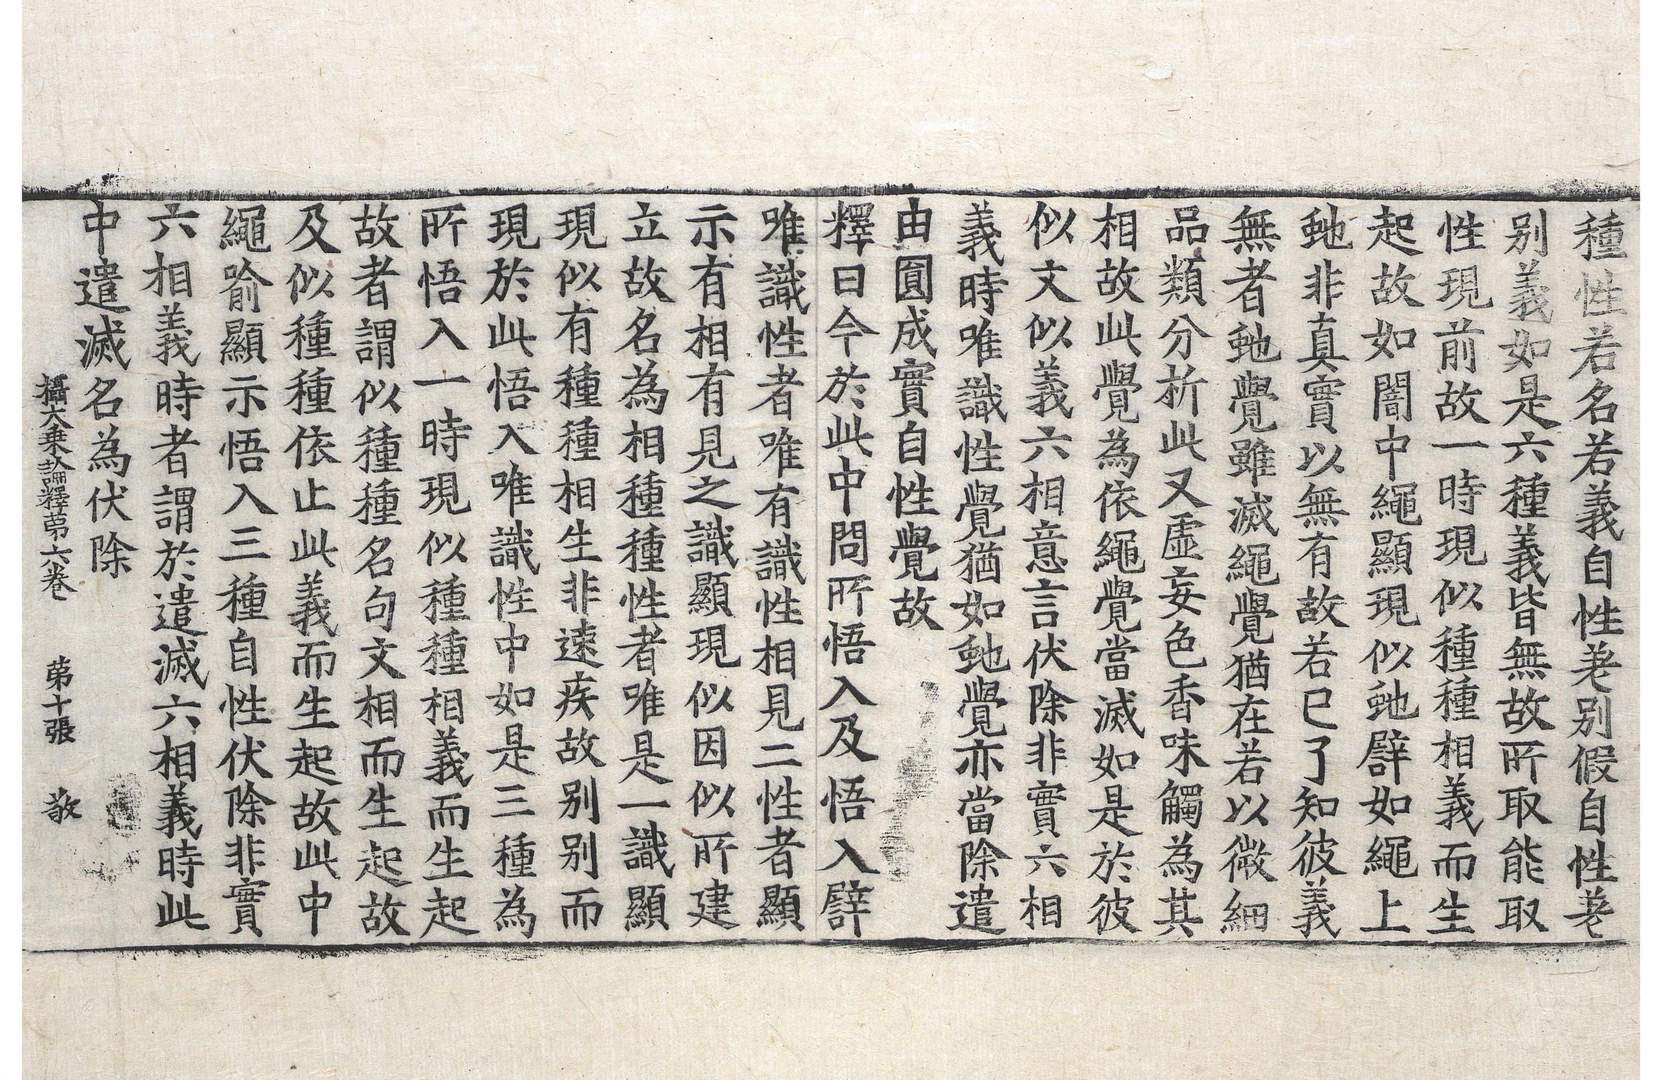 種性若名若義自性差別假自性差
別義如是六種義皆無故所取能取
性現前故一時現似種種相義而生
起故如闇中繩顯現似虵譬如繩上
虵非真實以無有故若已了知彼義
無者虵覺雖滅繩覺猶在若以微細
品類分析此又虛妄色香味觸為其
相故此覺為依繩覺當滅如是於彼
似文似義六相意言伏除非實六相
義時唯識性覺猶如虵覺亦當除遣
由圓成實自性覺故
釋曰今於此中問所悟入及悟入譬
唯識性者唯有識性相見二性者顯
示有相有見之識顯現似因似所建
立故名為相種種性者唯是一識顯
現似有種種相生非速疾故別別而
現於此悟入唯識性中如是三種為
所悟入一時現似種種相義而生起
故者謂似種種名句文相而生起故
及似種種依止此義而生起故此中
繩喻顯示悟入三種自性伏除非實
六相義時者謂於遣滅六相義時此
中遣滅名為伏除
攝大乘論釋第六卷 第十張 敬